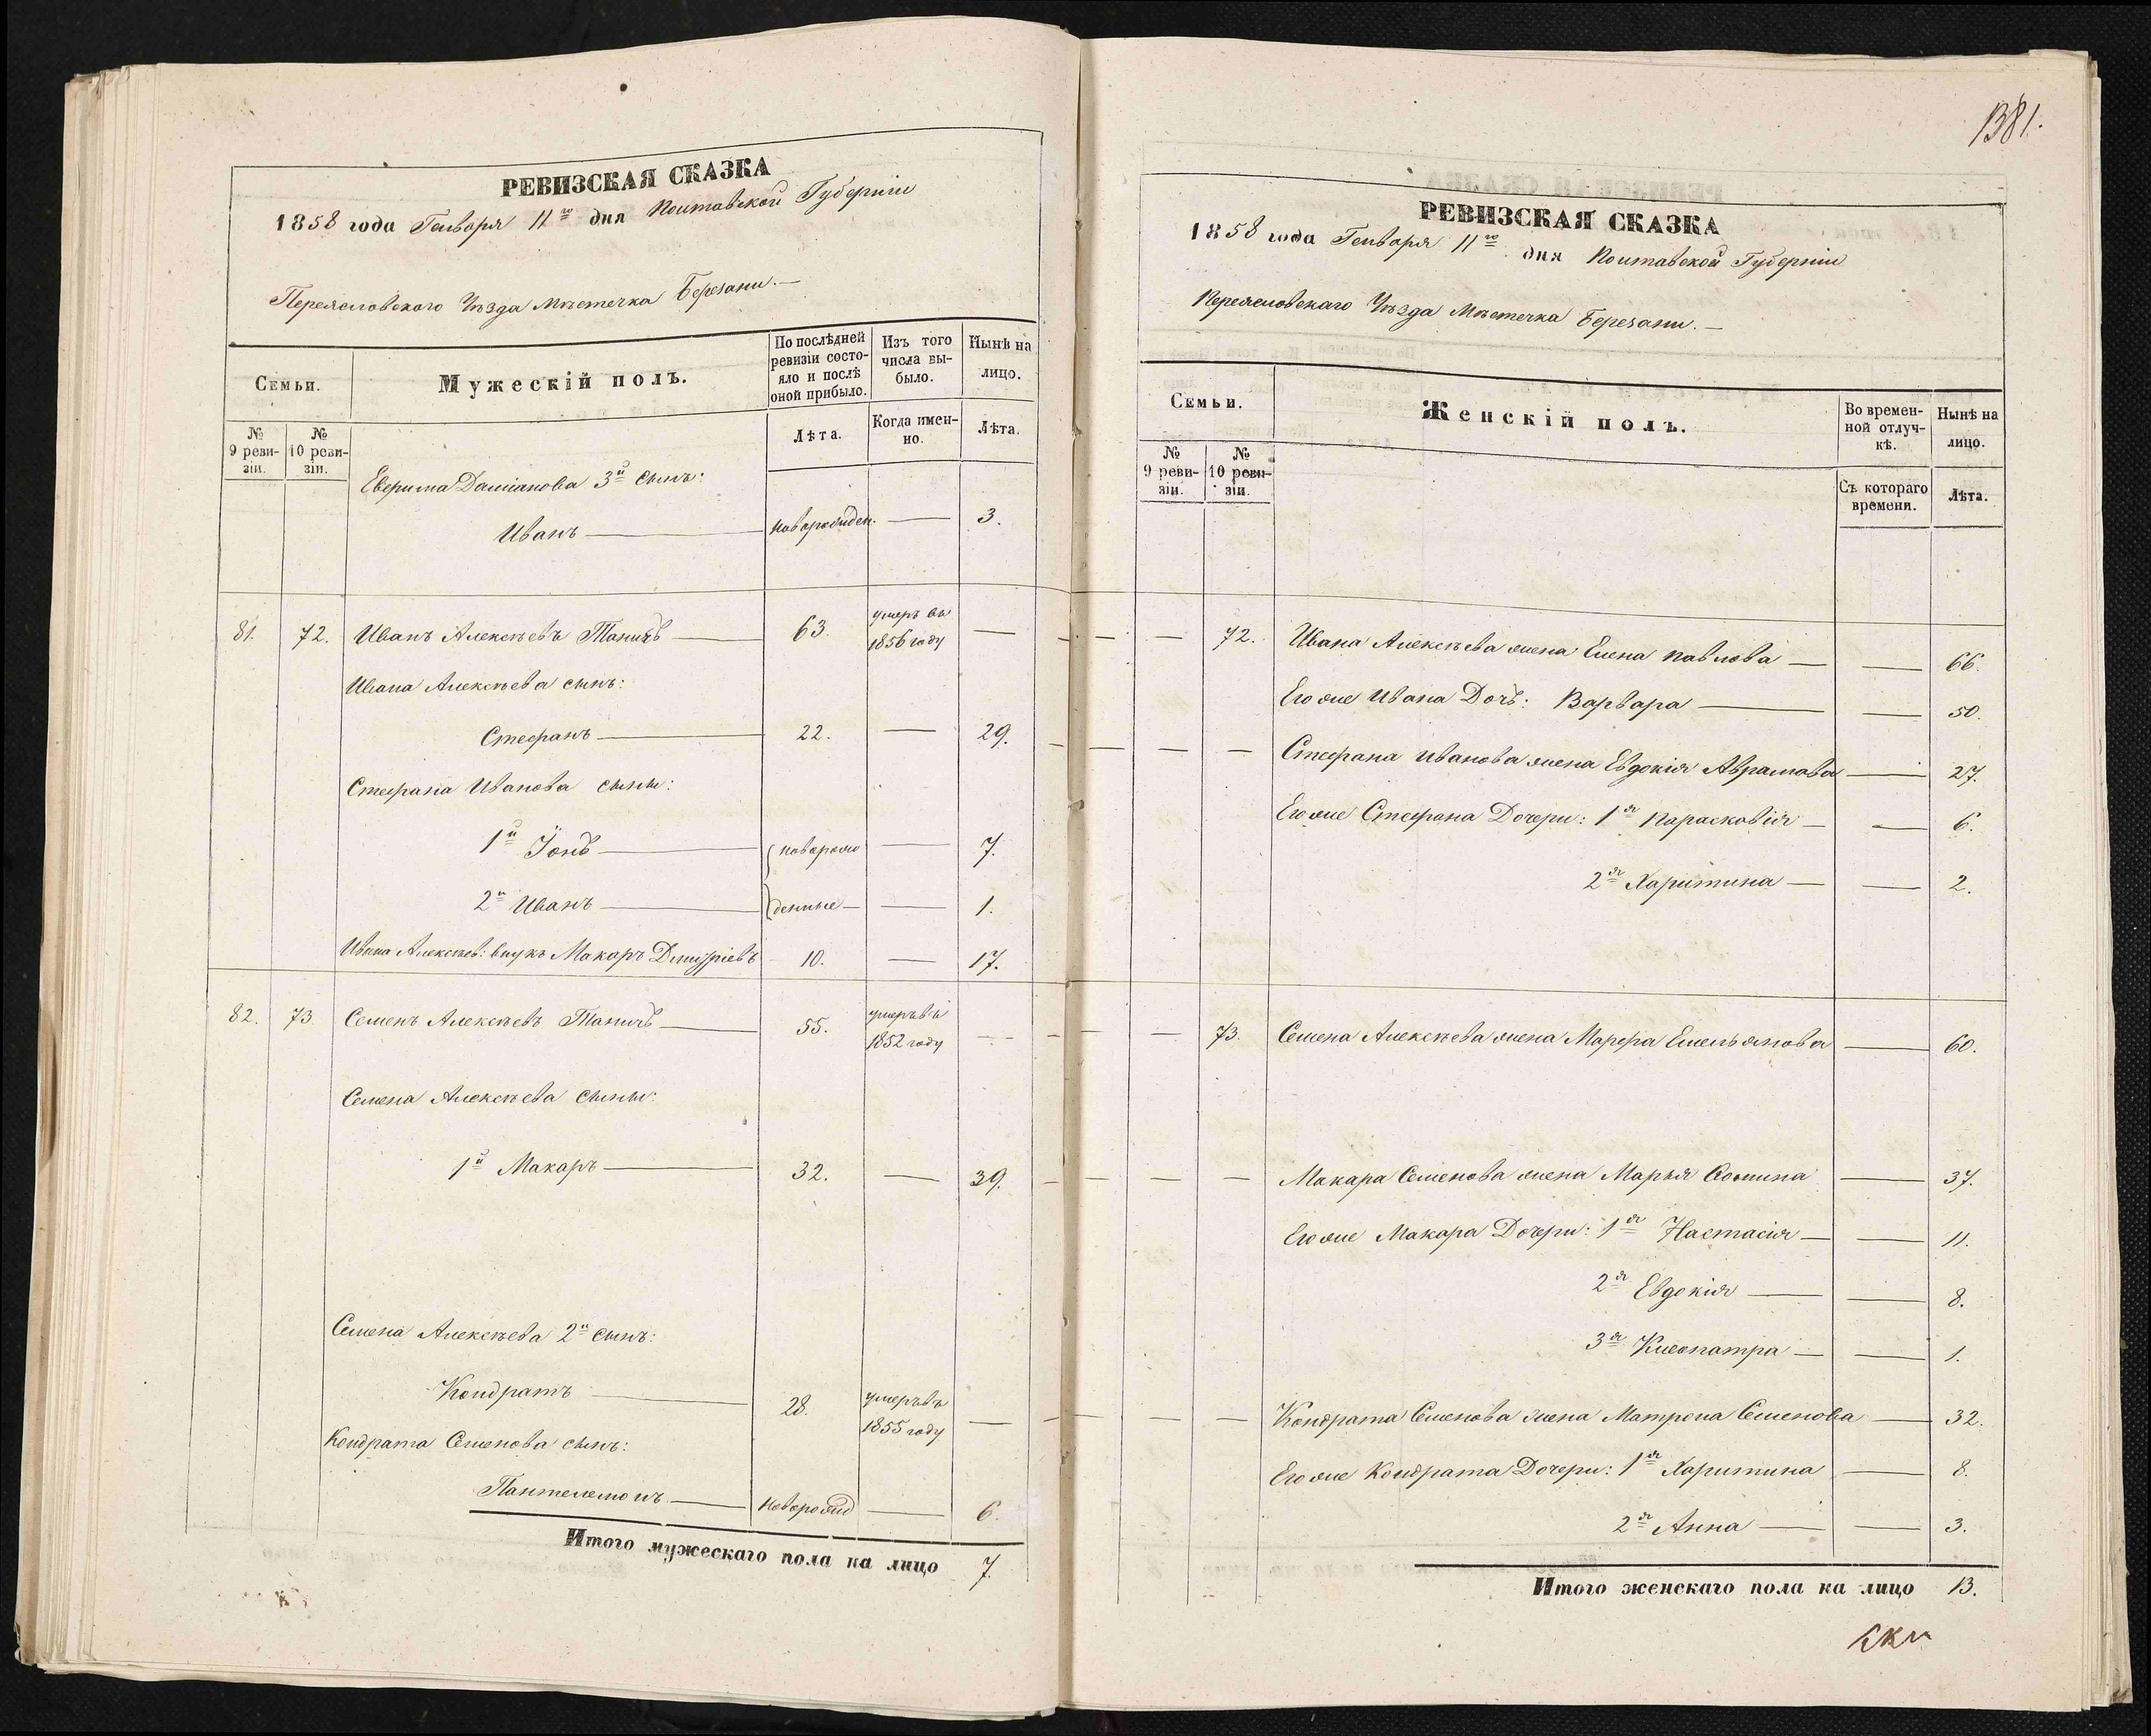 РЕВИЗСКАЯ СКАЗКА
1858 года Генваря 11го дня Полтавской Губерніи
Переясловского Уѣзда Мѣстечка Березани. —
Семьи.
Мужескій полъ.
По послѣдней ревизіи состояло и послѣ оной прибыло.
Изъ того числа выбыло.
Нынѣ на лицо.
№ 9 ревизіи.
№ 10 ревизіи.
Лѣта.
Когда именно.
Лѣта.
Даміанова 3й сынъ:
Иванъ — новорожден. — 3.
81. 72. Иванъ Алексѣевъ — 63. умеръ въ 1856 году —
Ивана Алексѣева сынъ:
Стефанъ — 22. — 29.
Стефана Иванова сыны:
1й Іонъ — новорож — 7.
2й Иванъ — денные — 1.
Ивана Алексѣев: внукъ Макаръ Дмитріевъ 10. — 17.
82. 73 Семенъ Алексѣевъ — 55. умеръ въ 1852 году —
Семена Алексѣева сыны:
1й Макаръ — 32. — 39.
Семена Алексѣева 2й сынъ:
Кондратъ — 28. умеръ въ 1855 году —
Кондрата Семенова сынъ:
Пантелемонъ — новорожд — 6.
Итого мужескаго пола на лицо 7.
1381.
РЕВИЗСКАЯ СКАЗКА
1858 года Генваря 11го дня Полтавской Губерніи
Переясловскаго Уѣзда Мѣстечка Березани. —
Семьи.
Женскій полъ.
Во временной отлучкѣ.
Нынѣ на лицо.
№ 9 ревизіи.
№ 10 ревизіи.
Съ котораго времени.
Лѣта.
72. Ивана Алексѣева жена Елена Павлова — — 66.
Его же Ивана Дочь: Варвара — — 50.
Стефана Иванова жена Евдокія Аврамова — 27.
Его же Стефана Дочери: 1я Парасковія — — 6.
2я Харитина — — 2.
73. Семена Алексѣева жена Марфа Емельянова — 60.
Макара Семенова жена Марья — 37.
Его же Макара Дочери: 1я Настасія — — 11.
2я Евдокія — — 8.
3я Клеопатра — — 1.
Кондрата Семенова жена Матрона Семенова — 32.
Его же Кондрата Дочери: 1я Харитина — 8.
2я Анна — — 3.
Итого женскаго пола на лицо 13.